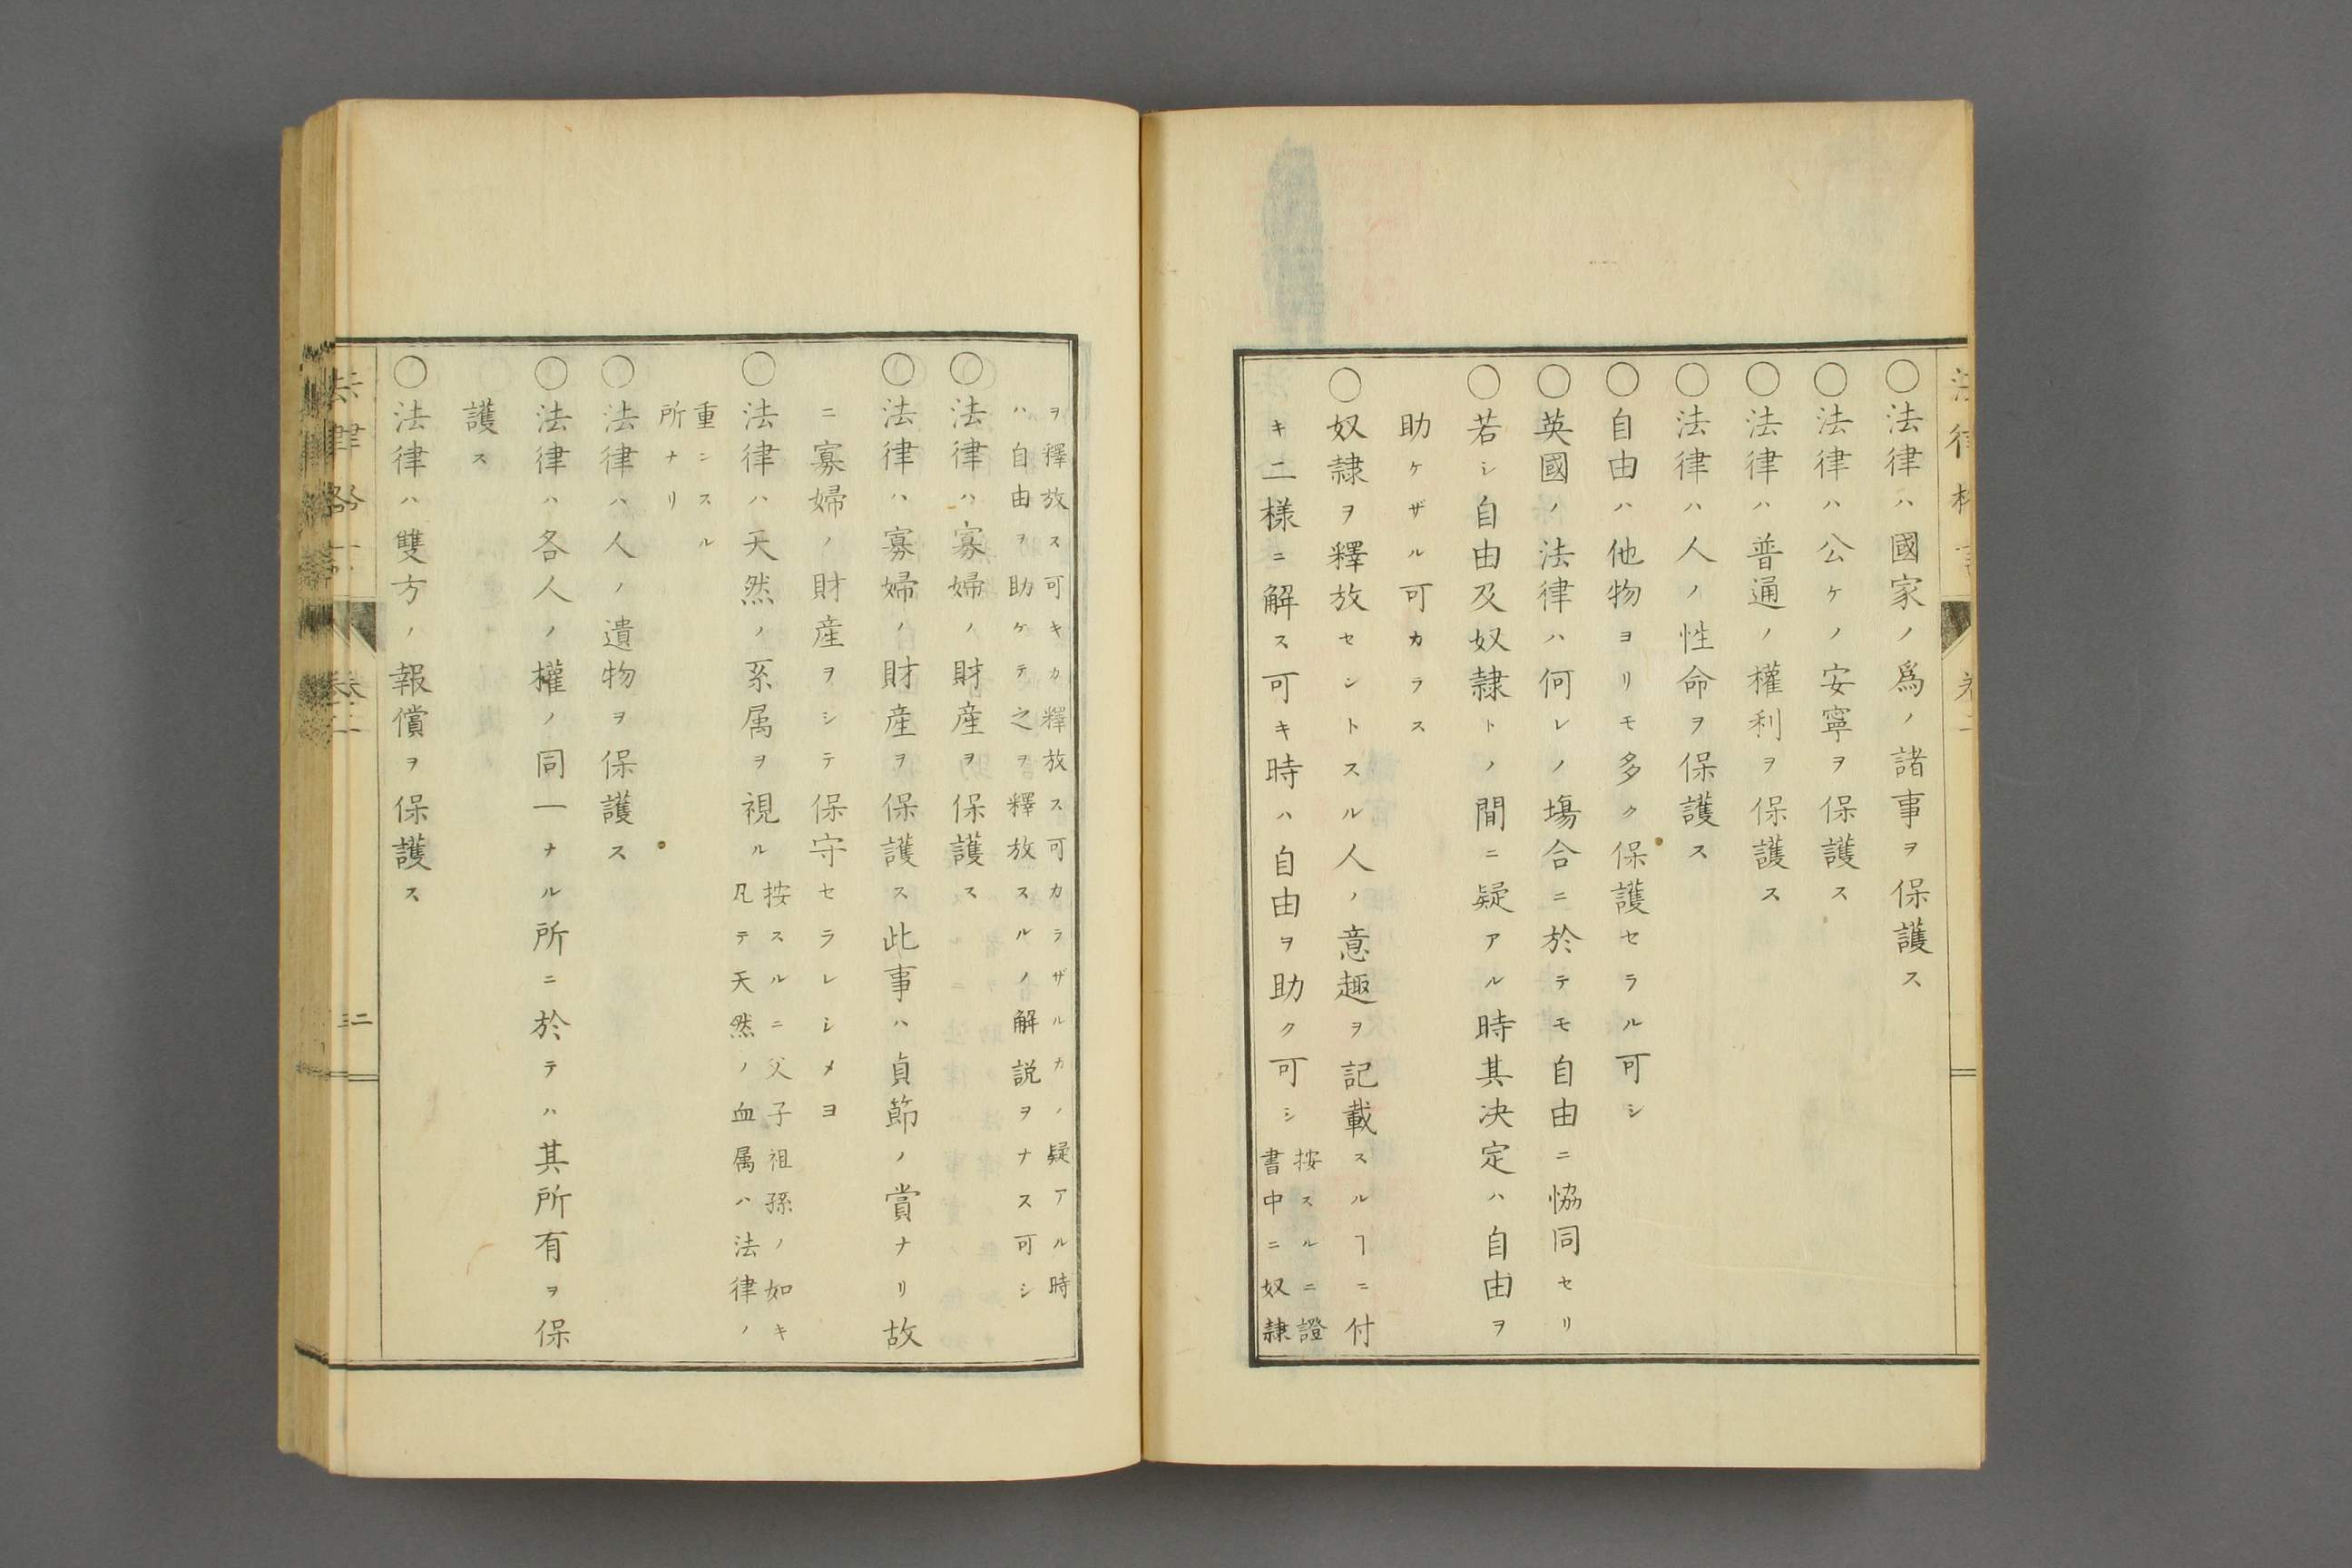 〇法律ハ國家ノ爲ノ諸事ヲ保護ス
〇法律ハ公ケノ安寧ヲ保護ス
〇法律ハ普通ノ權利ヲ保護ス
〇法律ハ人ノ性命ヲ保護ス
〇自由ハ他物ヨリモ多ク保護セラル可シ
〇英國ノ法律ハ何レノ塲合ニ於テモ自由ニ恊同セリ
〇若シ自由及奴隷トノ間ニ疑アル時其决定ハ自由ヲ
助ケザル可カラス
〇奴隷ヲ釋放セントスル人ノ意趣ヲ記載スルヿニ付
キ二様ニ解ス可キ時ハ自由ヲ助ク可シ
按スルニ證
書中ニ奴隷
ヲ釋放ス可キカ釋放ス可カラザルカノ疑アル時
ハ自由ヲ助ケテ之ヲ釋放スルノ解説ヲナス可シ
〇法律ハ寡婦ノ財産ヲ保護ス
〇法律ハ寡婦ノ財産ヲ保護ス此事ハ貞節ノ賞ナリ故
ニ寡婦ノ財産ヲシテ保守セラレシメヨ
〇法律ハ天然ノ系属ヲ視ル
按スルニ父子祖孫ノ如キ
凡テ天然ノ血属ハ法律ノ
重ンスル
所ナリ
〇法律ハ人ノ遺物ヲ保護ス
〇法律ハ各人ノ權ノ同一ナル所ニ於テハ其所有ヲ保
護ス
〇法律ハ雙方ノ報償ヲ保護ス